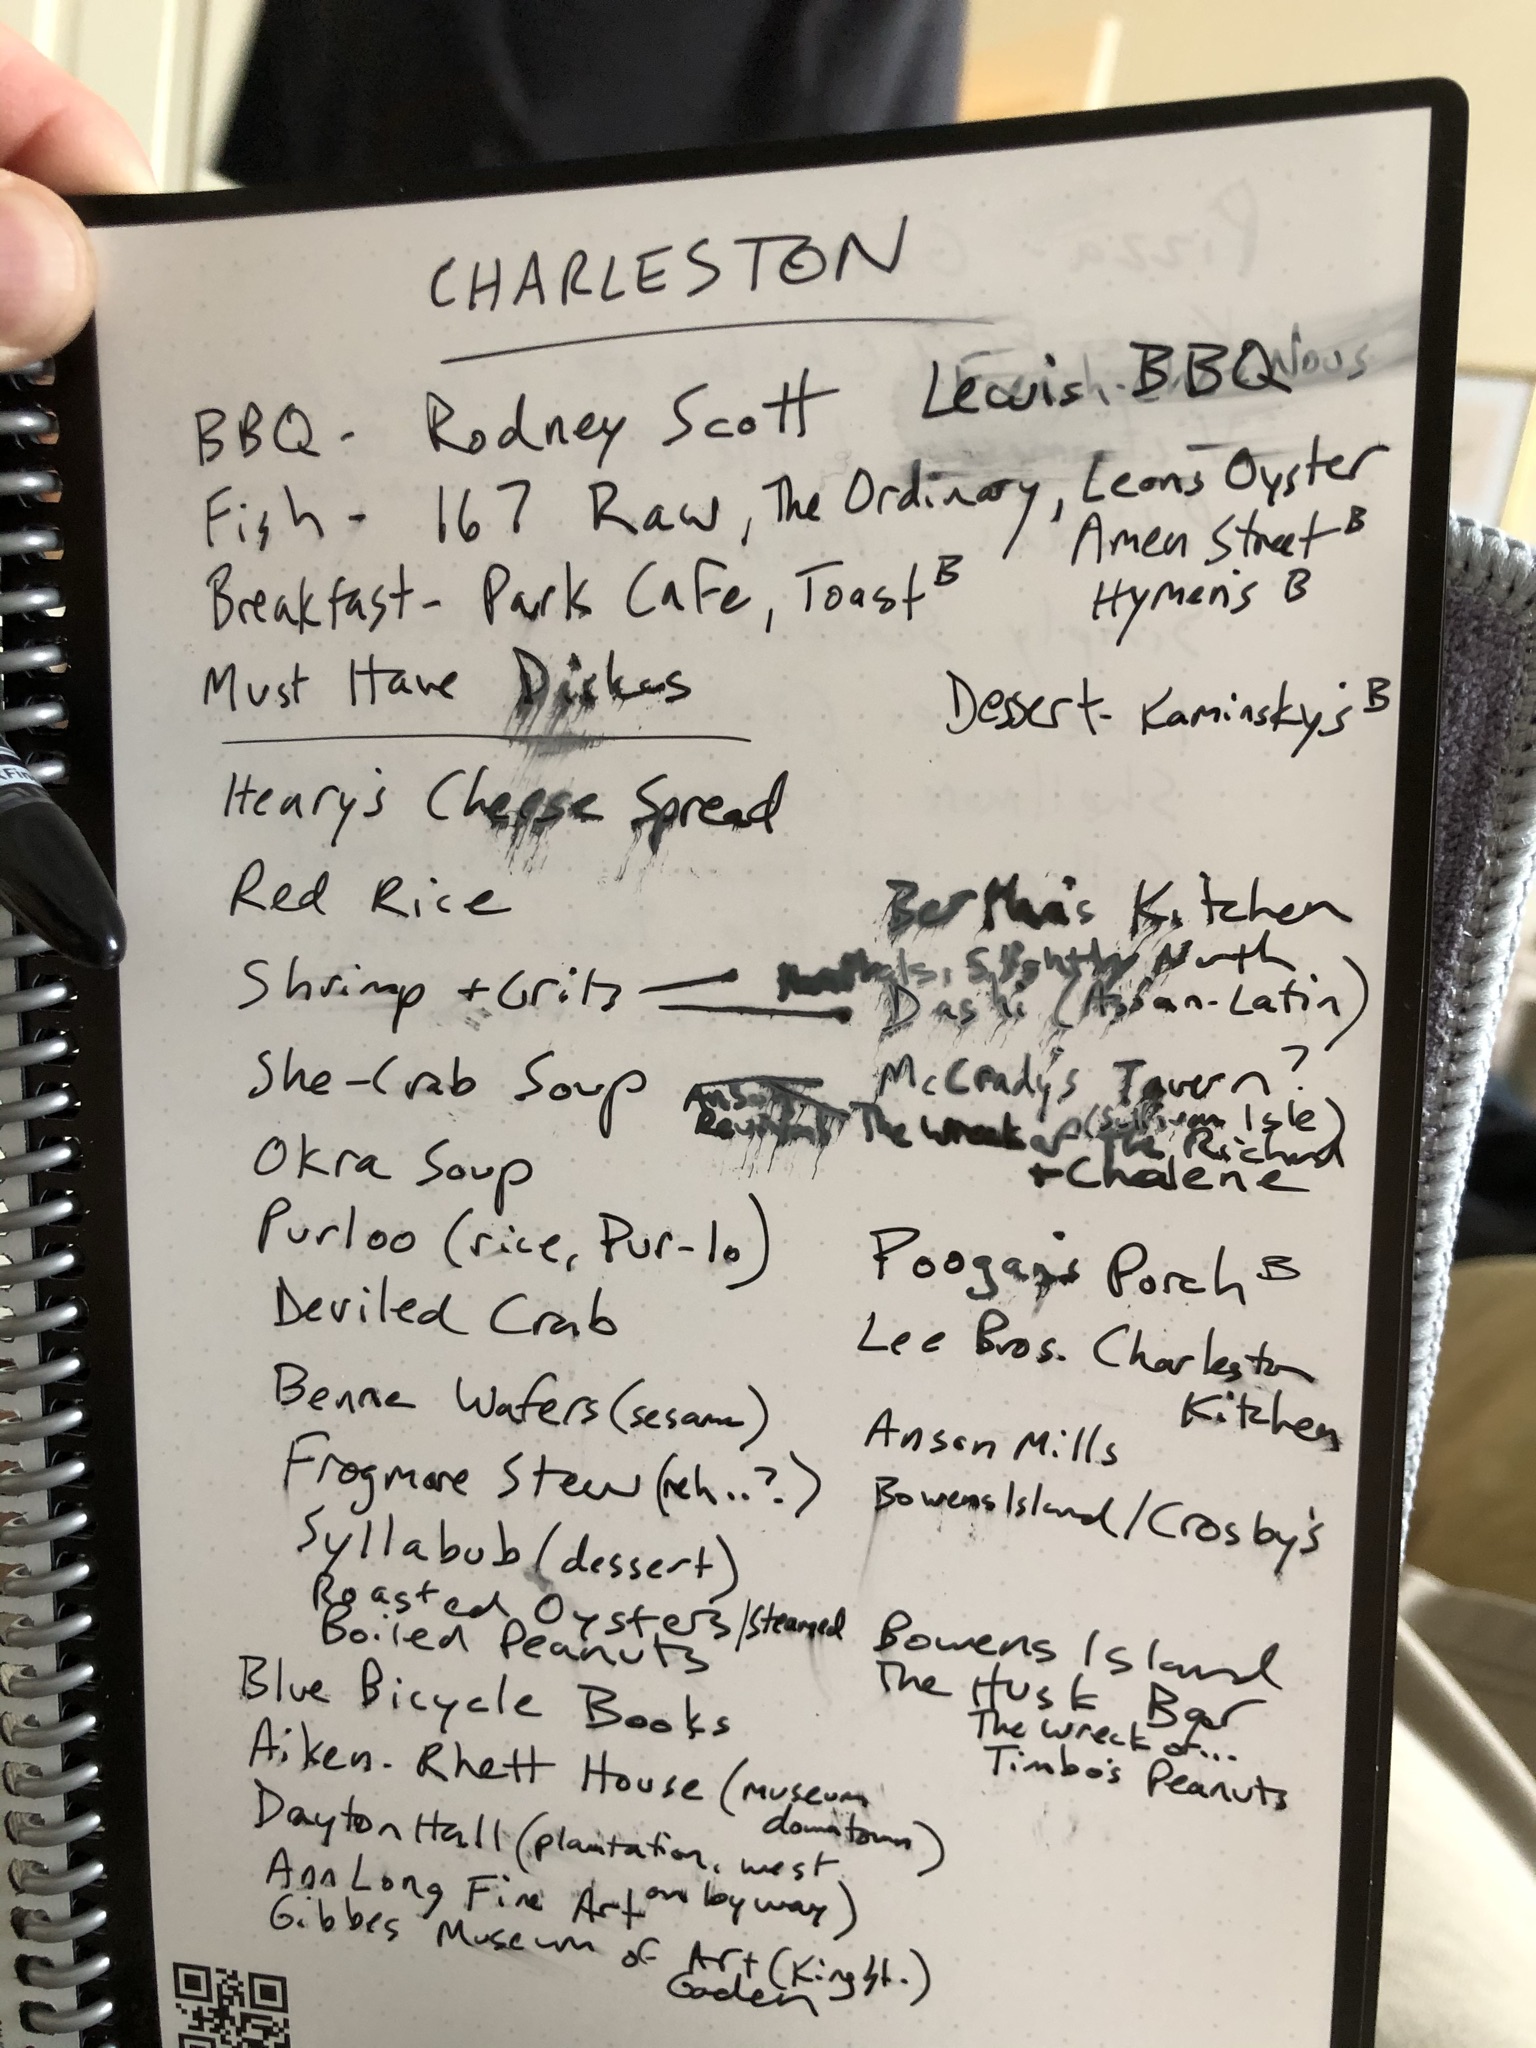 CHARLESTON
BBQ - Rodney Scott Lewis BBQ
Fish - 167 Raw, The Ordinary, Leons Oyster
Amen Street B
Breakfast - Park Cafe, Toast B
Hymen's B
Must Have Dishes
Dessert - Kaminsky's B
Henry's Cheese Spread
Red Rice
Bertha's Kitchen
Shrimp + Grits
Slightly North
Dashi (Asian-Latin)
She-Crab Soup
McCrady's Tavern?
Anson
The Wreck of the Richard
(Sullivan Isle)
+ Chalene
Okra Soup
Purloo (rice, Pur-lo)
Poogan's Porch B
Deviled Crab
Lee Bros. Charleston
Kitchen
Benne Wafers (sesame)
Anson Mills
Frogmore Stew (meh..?)
Bowens Island/Crosby's
Syllabub (dessert)
Roasted Oysters/Steamed
Bowens Island
Boiled Peanuts
The Husk Bar
The Wreck of...
Timbo's Peanuts
Blue Bicycle Books
Aiken-Rhett House (museum
downtown)
Dayton Hall (plantation, west
on byway)
Ann Long Fine Art
Gibbes Museum of Art (King St.)
Gaden